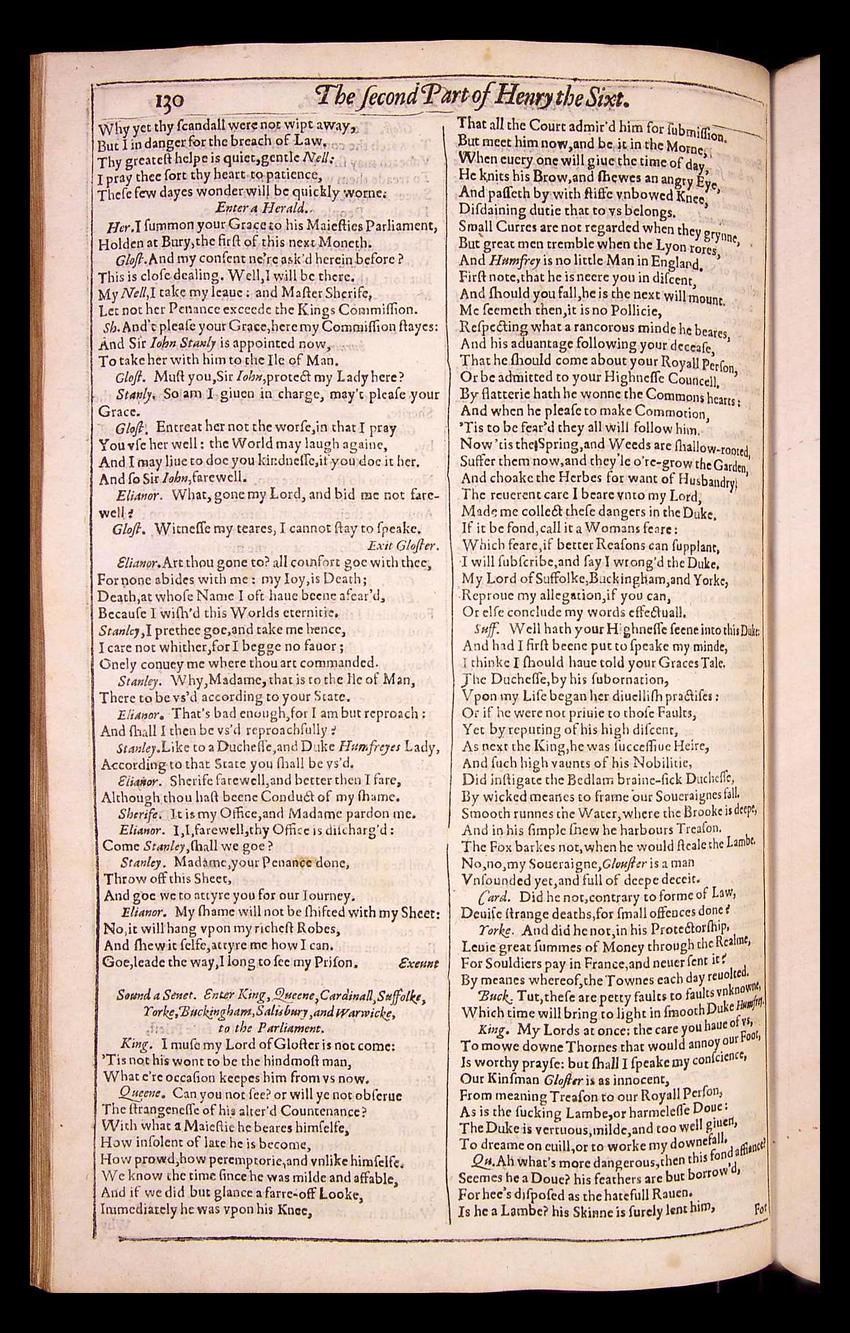 130
The ſecond Part of Henry the Sixt.
Why yet thy ſcandall were not wipt away,
But I in danger for the breach of Law.
Thy greateſt helpe is quiet, gentle Nell:
I pray thee ſort thy heart to patience,
Theſe few dayes wonder will be quickly worne.
Enter a Herald.
Her. I ſummon your Grace to his Maieſties Parliament,
Holden at Bury, the firſt of this next Moneth.
Gloſt. And my conſent ne're ask'd herein before ?
This is cloſe dealing. Well, I will be there.
My Nell, I take my leaue : and Maſter Sherife,
Let not her Penance exceede the Kings Commiſſion.
Sh. And't pleaſe your Grace, here my Commiſſion ſtayes:
And Sir Iohn Stanly is appointed now,
To take her with him to the Ile of Man.
Gloſt. Muſt you, Sir Iohn, protect my Lady here?
Stanly. So am I giuen in charge, may't pleaſe your
Grace.
Gloſt. Entreat her not the worſe, in that I pray
You vſe her well : the World may laugh againe,
And I may liue to doe you kindneſſe, if you doe it her.
And ſo Sir Iohn, farewell.
Elianor. What, gone my Lord, and bid me not fare-
well ?
Gloſt. Witneſſe my teares, I cannot ſtay to ſpeake.
Exit Gloſter.
Elianor. Art thou gone to? all comfort goe with thee,
For none abides with me : my Ioy, is Death;
Death, at whoſe Name I oft haue beene afear'd,
Becauſe I wiſh'd this Worlds eternitie.
Stanley, I prethee goe, and take me hence,
I care not whither, for I begge no fauor ;
Onely conuey me where thou art commanded.
Stanley. Why, Madame, that is to the Ile of Man,
There to be vs'd according to your State.
Elianor. That's bad enough, for I am but reproach :
And ſhall I then be vs'd reproachfully ?
Stanley. Like to a Ducheſſe, and Duke Humfreyes Lady,
According to that State you ſhall be vs'd.
Elianor. Sherife farewell, and better then I fare,
Although thou haſt beene Conduct of my ſhame.
Sherife. It is my Office, and Madame pardon me.
Elianor. I, I, farewell, thy Office is diſcharg'd :
Come Stanley, ſhall we goe ?
Stanley. Madame, your Penance done,
Throw off this Sheet,
And goe we to attyre you for our Iourney.
Elianor. My ſhame will not be ſhifted with my Sheet:
No, it will hang vpon my richeſt Robes,
And ſhew it ſelfe, attyre me how I can.
Goe, leade the way, I long to ſee my Priſon. Exeunt
Sound a Senet. Enter King, Queene, Cardinall, Suffolke,
Yorke, Buckingham, Salisbury, and Warwicke,
to the Parliament.
King. I muſe my Lord of Gloſter is not come:
'Tis not his wont to be the hindmoſt man,
What e're occaſion keepes him from vs now.
Queene. Can you not ſee? or will ye not obſerue
The ſtrangeneſſe of his alter'd Countenance?
With what a Maieſtie he beares himſelfe,
How inſolent of late he is become,
How prowd, how peremptorie, and vnlike himſelfe.
We know the time ſince he was milde and affable,
And if we did but glance a farre-off Looke,
Immediately he was vpon his Knee,
That all the Court admir'd him for ſubmiſſion.
But meet him now, and be it in the Morne,
When euery one will giue the time of day,
He knits his Brow, and ſhewes an angry Eye,
And paſſeth by with ſtiffe vnbowed Knee,
Diſdaining dutie that to vs belongs.
Small Curres are not regarded when they grynne,
But great men tremble when the Lyon rores,
And Humfrey is no little Man in England.
Firſt note, that he is neere you in diſcent,
And ſhould you fall, he is the next will mount.
Me ſeemeth then, it is no Pollicie,
Reſpecting what a rancorous minde he beares,
And his aduantage following your deceaſe,
That he ſhould come about your Royall Perſon,
Or be admitted to your Highneſſe Councell.
By flatterie hath he wonne the Commons hearts :
And when he pleaſe to make Commotion,
'Tis to be fear'd they all will follow him.
Now 'tis the Spring, and Weeds are ſhallow-rooted,
Suffer them now, and they'le o're-grow the Garden,
And choake the Herbes for want of Husbandry.
The reuerent care I beare vnto my Lord,
Made me collect theſe dangers in the Duke.
If it be fond, call it a Womans feare :
Which feare, if better Reaſons can ſupplant,
I will ſubſcribe, and ſay I wrong'd the Duke.
My Lord of Suffolke, Buckingham, and Yorke,
Reproue my allegation, if you can,
Or elſe conclude my words effectuall.
Suff. Well hath your Highneſſe ſeene into this Duke:
And had I firſt beene put to ſpeake my minde,
I thinke I ſhould haue told your Graces Tale.
The Ducheſſe, by his ſubornation,
Vpon my Life began her diuelliſh practiſes :
Or if he were not priuie to thoſe Faults,
Yet by reputing of his high diſcent,
As next the King, he was ſucceſſiue Heire,
And ſuch high vaunts of his Nobilitie,
Did inſtigate the Bedlam braine-ſick Ducheſſe,
By wicked meanes to frame our Soueraignes fall.
Smooth runnes the Water, where the Brooke is deepe,
And in his ſimple ſhew he harbours Treaſon.
The Fox barkes not, when he would ſteale the Lambe.
No, no, my Soueraigne, Glouſter is a man
Vnſounded yet, and full of deepe deceit.
Card. Did he not, contrary to forme of Law,
Deuiſe ſtrange deaths, for ſmall offences done?
Yorke. And did he not, in his Protectorſhip,
Leuie great ſummes of Money through the Realme,
For Souldiers pay in France, and neuer ſent it?
By meanes whereof, the Townes each day reuolted.
Buck. Tut, theſe are petty faults to faults vnknowne,
Which time will bring to light in ſmooth Duke Humfrey.
King. My Lords at once: the care you haue of vs,
To mowe downe Thornes that would annoy our Foot,
Is worthy prayſe: but ſhall I ſpeake my conſcience,
Our Kinſman Gloſter is as innocent,
From meaning Treaſon to our Royall Perſon,
As is the ſucking Lambe, or harmeleſſe Doue :
The Duke is vertuous, milde, and too well giuen,
To dreame on euill, or to worke my downefall.
Qu. Ah what's more dangerous, then this fond affiance?
Seemes he a Doue? his feathers are but borrow'd,
For hee's diſpoſed as the hatefull Rauen.
Is he a Lambe? his Skinne is ſurely lent him,
For